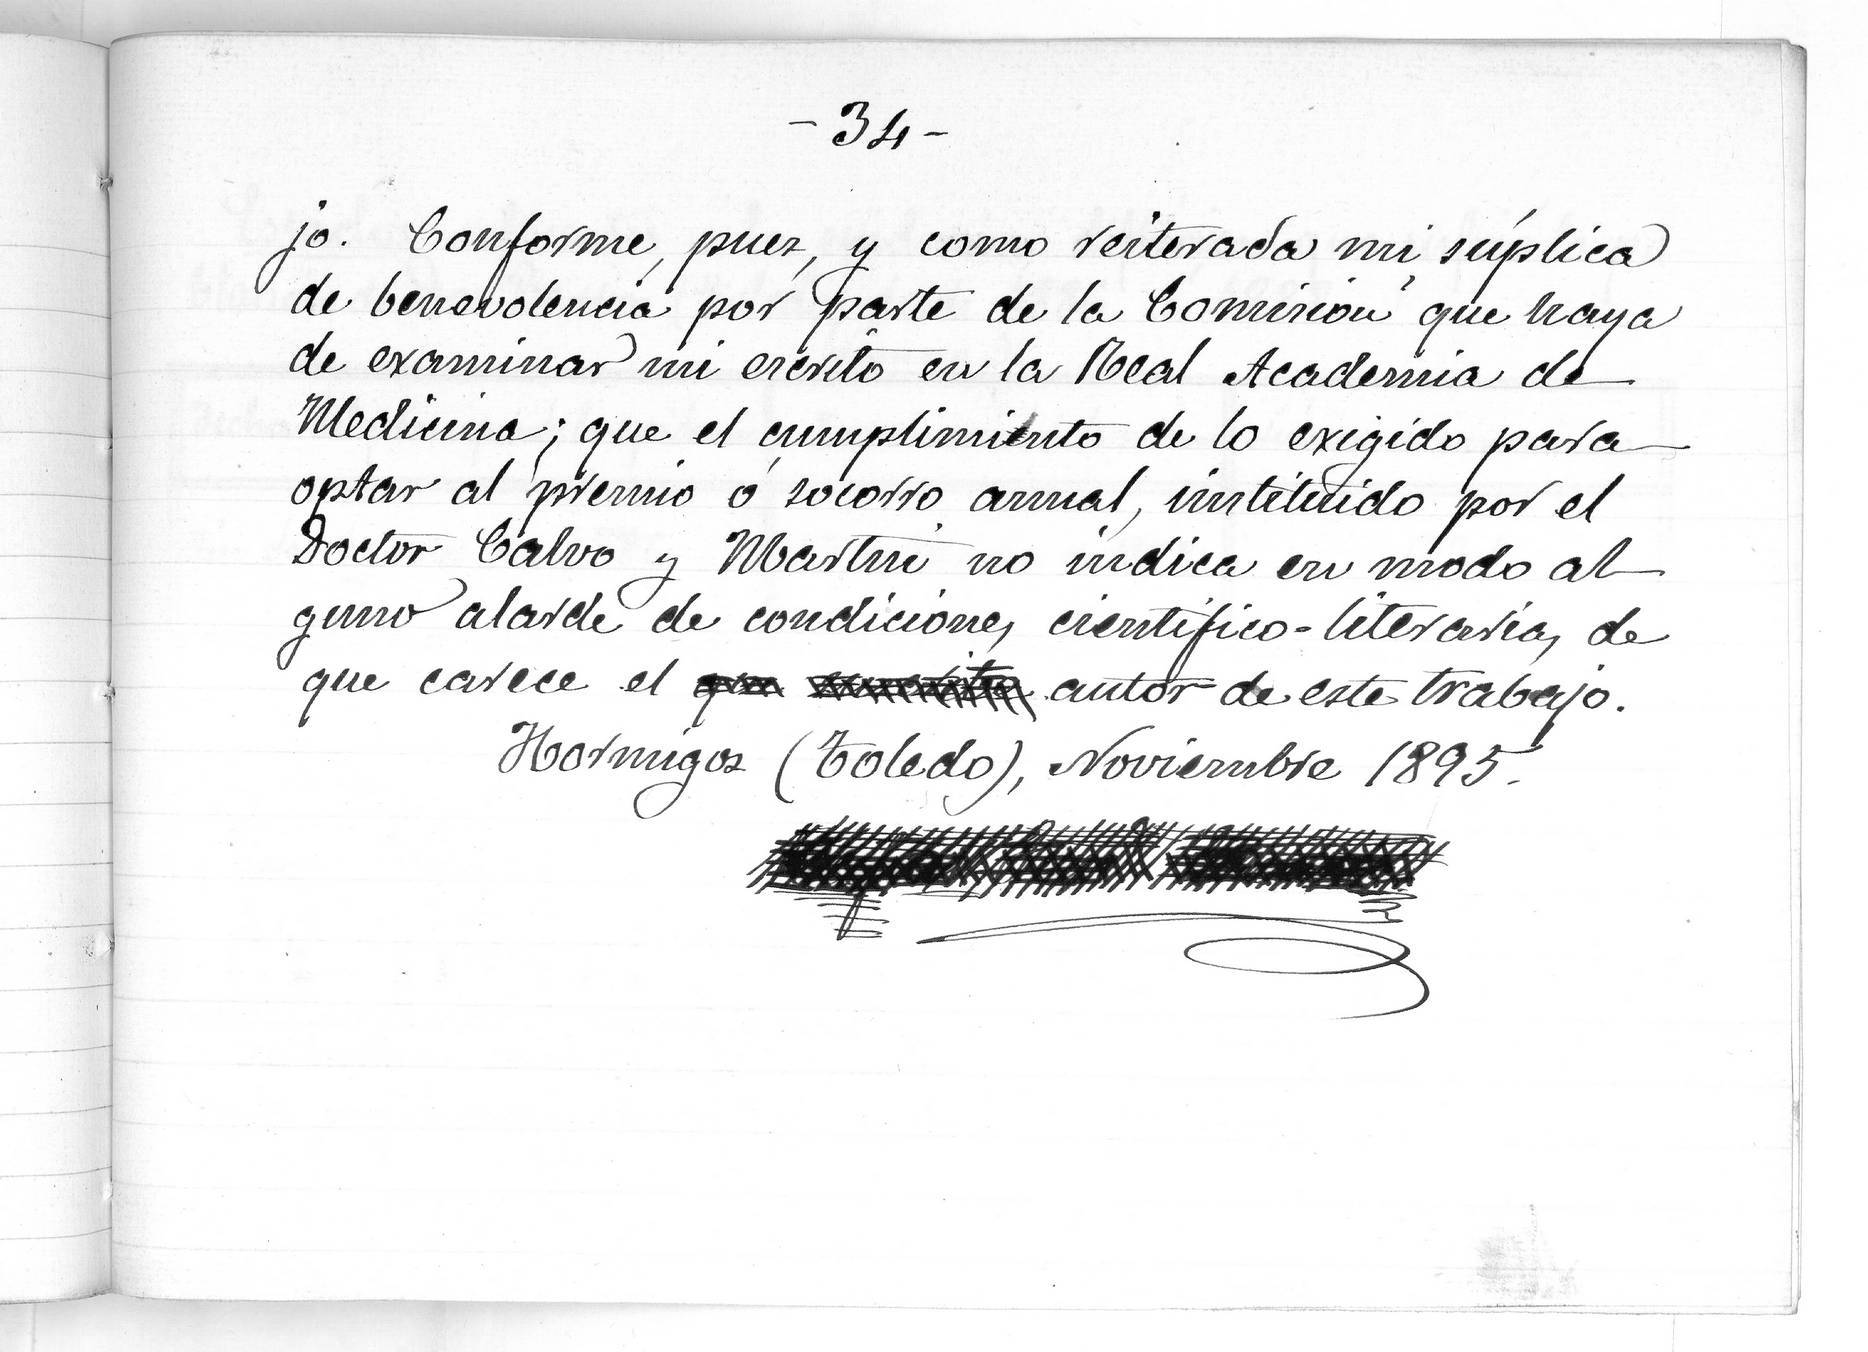 - 34 -
jo. Conforme, pues, y como reiterada mi súplica
de benevolencia por parte de la Comisión que haya
de examinar mi escrito en la Real Academia de
Medicina; que el cumplimiento de lo exigido para
optar al premio ó socorro anual, instituido por el
Doctor Calvo y Martín no indica en modo al
guno alarde de condiciones científico-literarias, de
que carece el autor de este trabajo.
Hormigos (Toledo), Noviembre 1895.